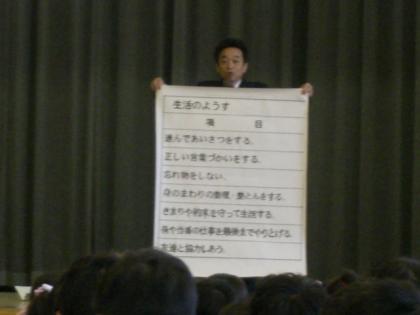 生活のようす
項 目
進んであいさつをする。
正しい言葉づかいをする。
忘れ物をしない。
身のまわりの整理・整とんをする。
きまりや約束を守って生活する。
係や当番の仕事を最後までやりとげる。
友達と協力しあう。